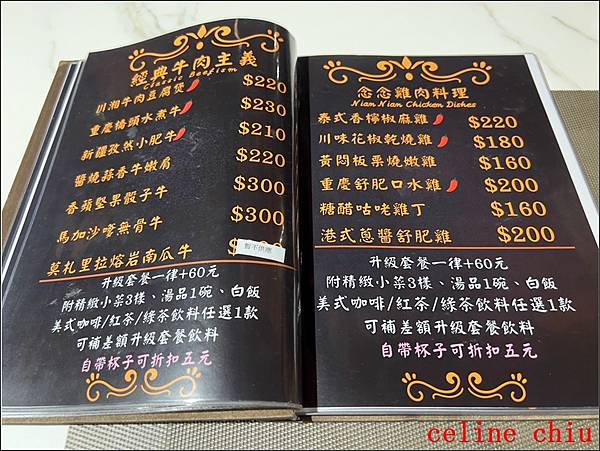 經典牛肉主義
Classic Beefism
川湘牛肉豆腐煲 $220
重慶橋頭水煮牛 $230
新疆孜然小肥牛 $210
醬燒蒜香牛嫩肩 $220
香蘋堅果骰子牛 $300
馬加沙嗲無骨牛 $300
莫札里拉熔岩南瓜牛 暫不供應
升級套餐一律+60元
附精緻小菜3樣、湯品1碗、白飯
美式咖啡/紅茶/綠茶飲料任選1款
可補差額升級套餐飲料
自帶杯子可折扣五元
念念雞肉料理
Nian Nian Chicken Dishes
泰式香檸椒麻雞 $220
川味花椒乾燒雞 $180
黃悶板栗燒嫩雞 $160
重慶舒肥口水雞 $200
糖醋咕咾雞丁 $160
港式蔥醬舒肥雞 $200
升級套餐一律+60元
附精緻小菜3樣、湯品1碗、白飯
美式咖啡/紅茶/綠茶飲料任選1款
可補差額升級套餐飲料
自帶杯子可折扣五元
celine chiu